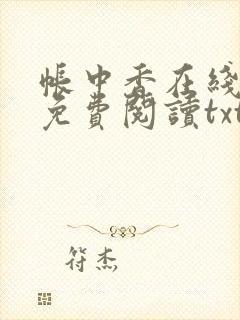 帳中香在綫
免費閱讀txt
符杰